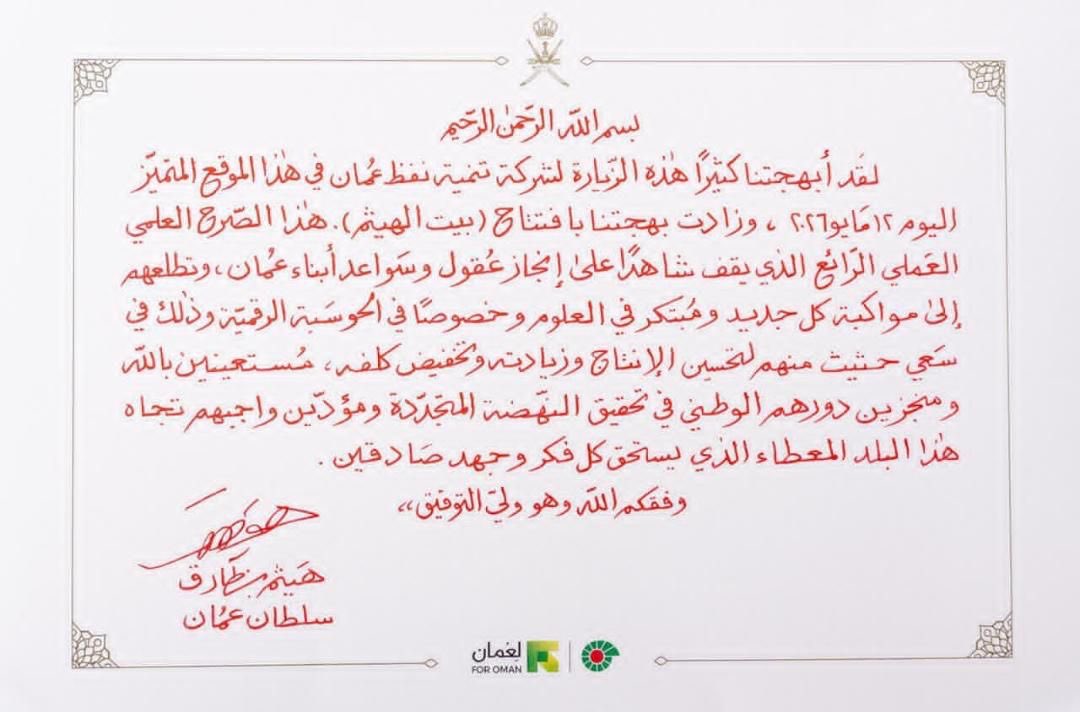 بسم الله الرحمن الرحيم
لقد أبهجتنا كثيرًا هذه الزيارة لشركة تنمية نفط عُمان في هذا الموقع المتميّز
اليوم ١٢ مَايو ٢٠٢٦ ، وزادت بهجتنا بافتتاح (بيت الهيثم). هذا الصّرح العلمي
العَملي الرّائع الذي يقف شاهدًا على إنجاز عُقول وسَواعد أبناء عُمان، وتطلعهم
إلى مواكبة كل جديد ومُبتكر في العلوم وخصوصًا في الحوسَبة الرقميّة وذلك في
سَعي حثيث منهم لتحسين الإنتاج وزيادته وتخفيض كلفه، مُستعينين بالله
ومنجزين دورهم الوطني في تحقيق النهّضة المتجدّدة ومؤدّين واجبهم تجاه
هذا البلد المعطاء الذي يستحق كل فكر وجهد صَادقين .
وفقكم الله وهو وليّ التوفيق،،
هَيثم بن طارق
سلطان عُمان
لعُمان
FOR OMAN